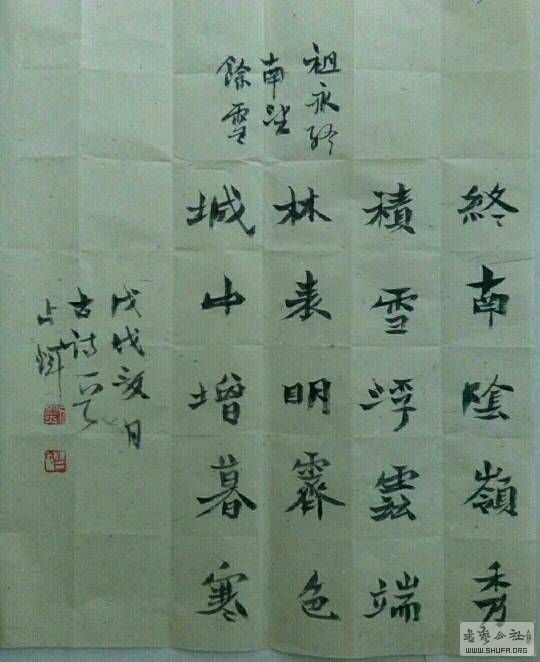 祖永終
南望
餘雪
終南陰嶺秀
積雪浮雲端
林表明霽色
城中增暮寒
戊戌月
古詩一首
WWW.SHUFA.ORG